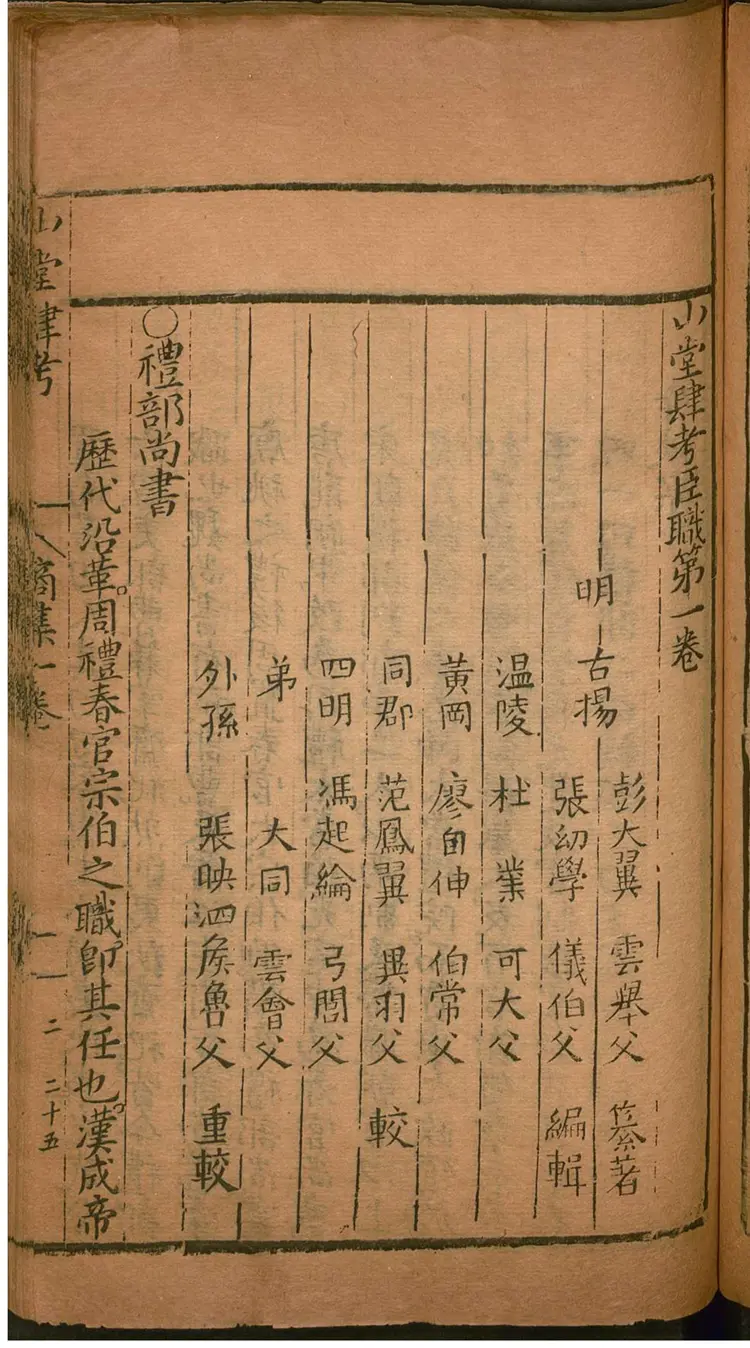 山堂肆考臣職第一卷
彭大翼 雲舉父 纂著
明 古揚
張幼學 儀伯父 編輯
温陵 杜業 可大父
黃岡 廖自伸 伯常父
同郡 范鳳翼 異羽父 較
四明 馮起綸 弓閭父
弟 大同 雲會父
外孫 張映泗矦魯父 重較
○禮部尚書
歷代沿革。周禮春官宗伯之職。即其任也。漢成帝
山堂肆考 商集一卷 二 二十五